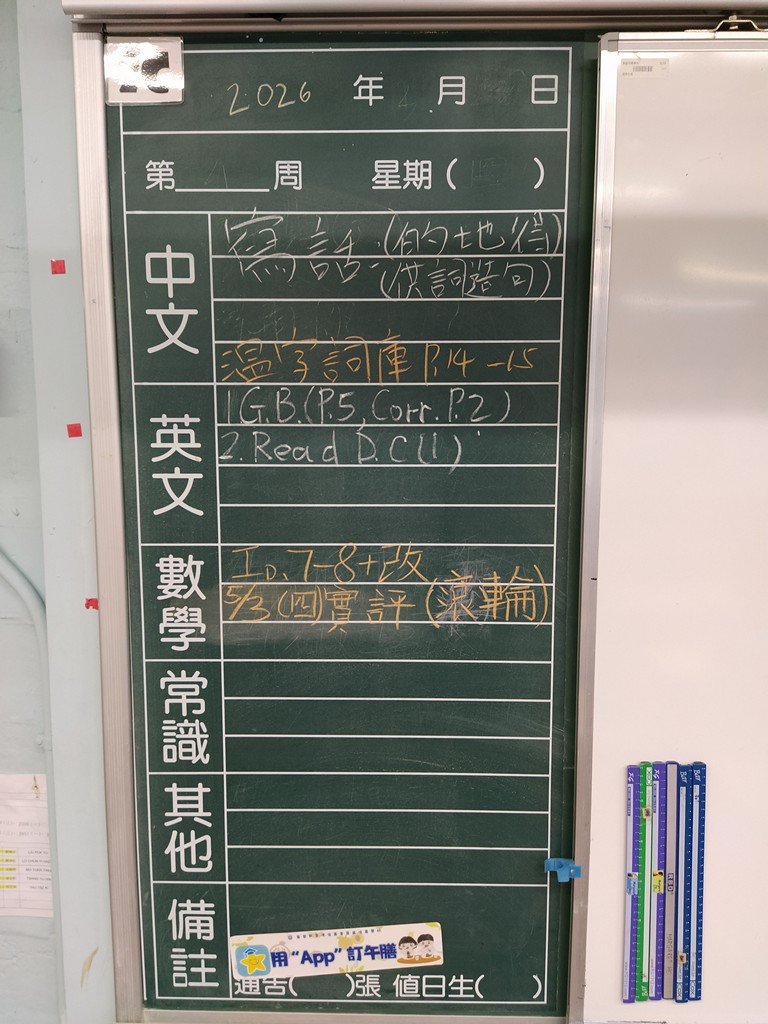 2026 年 月 日
第 周 星期( )
中文
寫話:(的地得)
(供詞造句)
溫字詞庫 P.14-15
英文
1 G.B.(P.5, Corr. P.2)
2. Read D.C (1)
數學
工D. 7-8+改
5/3 (四) 實評 (滾輪)
常識
其他
備註
用“App”訂午膳
通告( )張 值日生( )